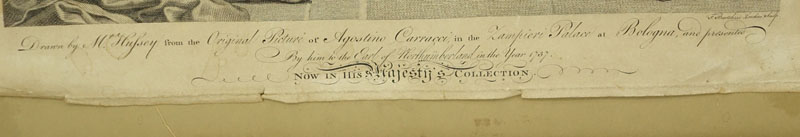 Drawn by Mr. Hussey from the Original Picture of Agostino Carracci, in the Zampieri Palace at Bologna, and presented
By him to the Earl of Northumberland in the Year 1737.
Now in His Majesty's Collection